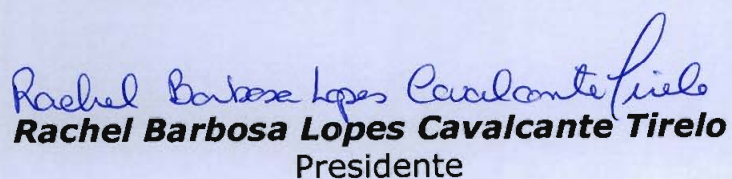 Rachel Barbosa Lopes Cavalcante Tirelo
Rachel Barbosa Lopes Cavalcante Tirelo
Presidente